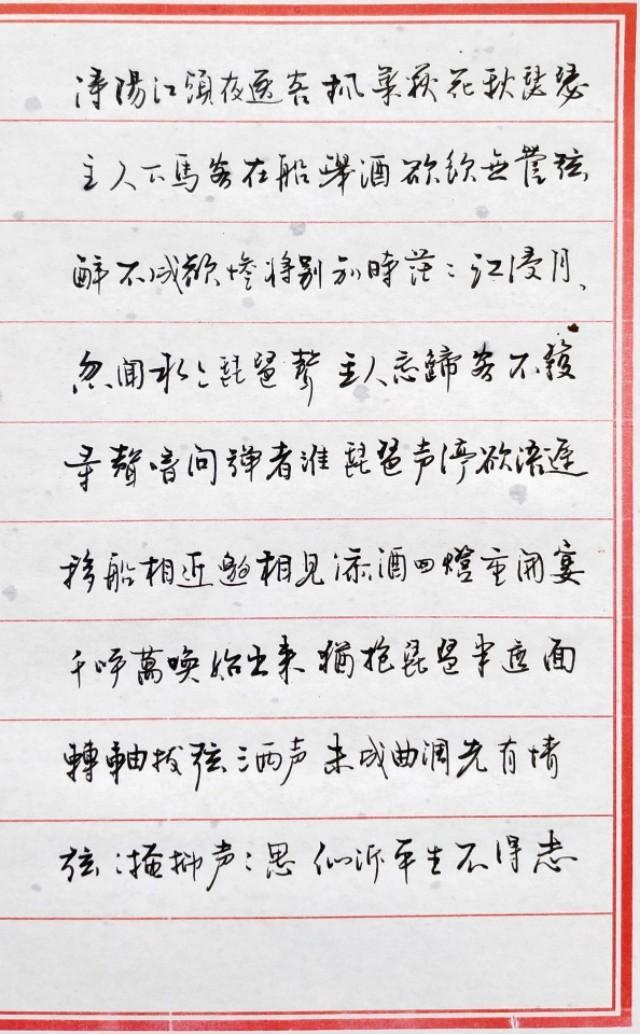 潯陽江頭夜送客枫葉荻花秋瑟瑟
主人下馬客在船舉酒欲飲無管弦
醉不成歡慘将别别時茫々江浸月
忽聞水上琵琶聲主人忘歸客不發
尋聲暗问弹者谁琵琶声停欲语遲
移船相近邀相見添酒回燈重開宴
千呼萬喚始出来猶抱琵琶半遮面
轉軸拔弦三两声未成曲调先有情
弦々掩抑声々思似诉平生不得志